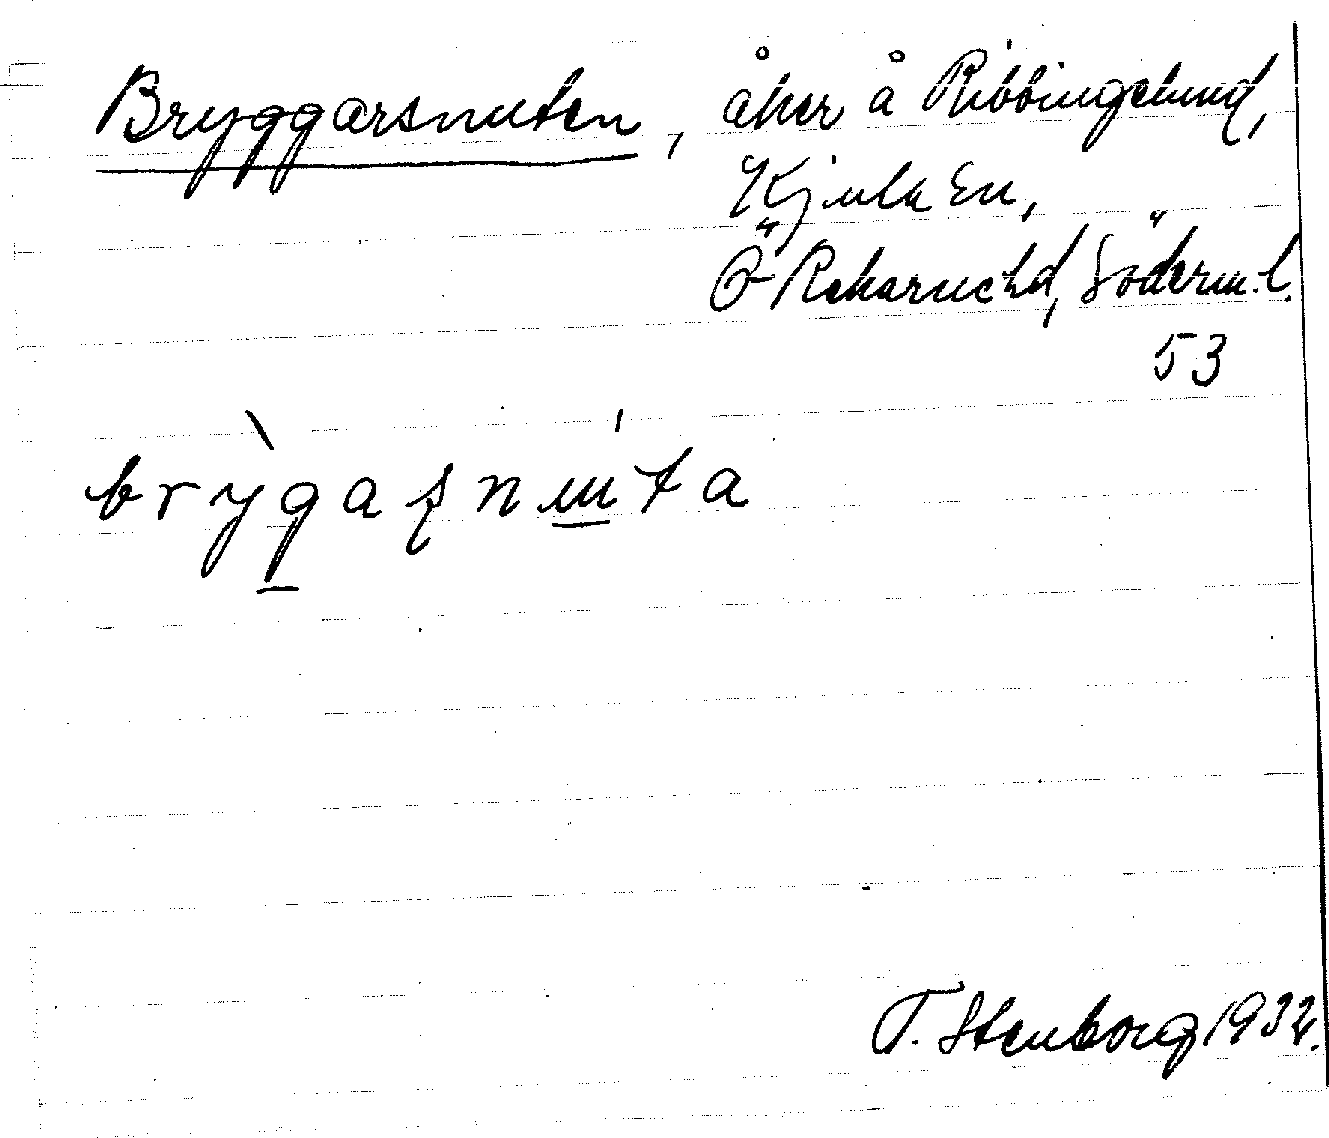 Bryggarsnuten, åker å Ribbingelund,
Kjula sn,
Ö Rekarne hd, Söderm. l.
53
T. Stenborg 1932.